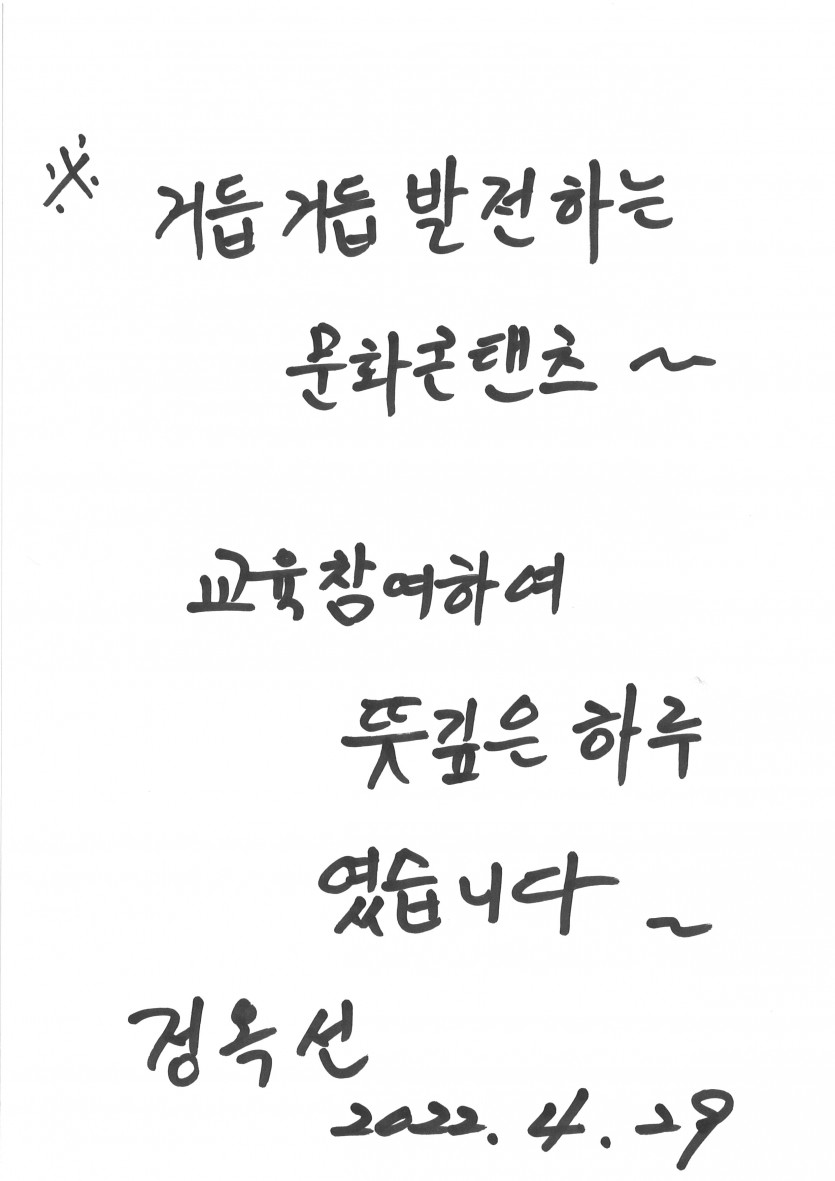 ※ 거듭 거듭 발전하는
문화콘텐츠 ~
교육참여하여
뜻깊은 하루
였습니다 ~
정옥선
2022. 4. 29